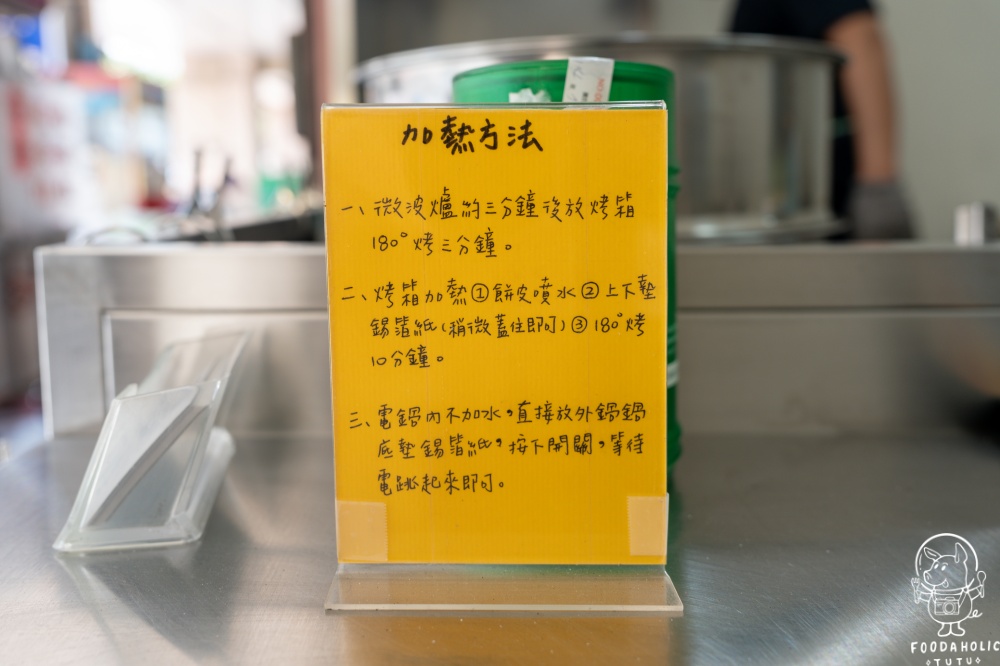 加熱方法
一、微波爐約三分鐘後放烤箱
180°烤三分鐘。
二、烤箱加熱①餅皮噴水②上下墊
錫箔紙(稍微蓋住即可)③180°烤
10分鐘。
三、電鍋內不加水，直接放外鍋鍋
底墊錫箔紙，按下開關，等待
電跳起來即可。
FOODAHOLIC
TUTU